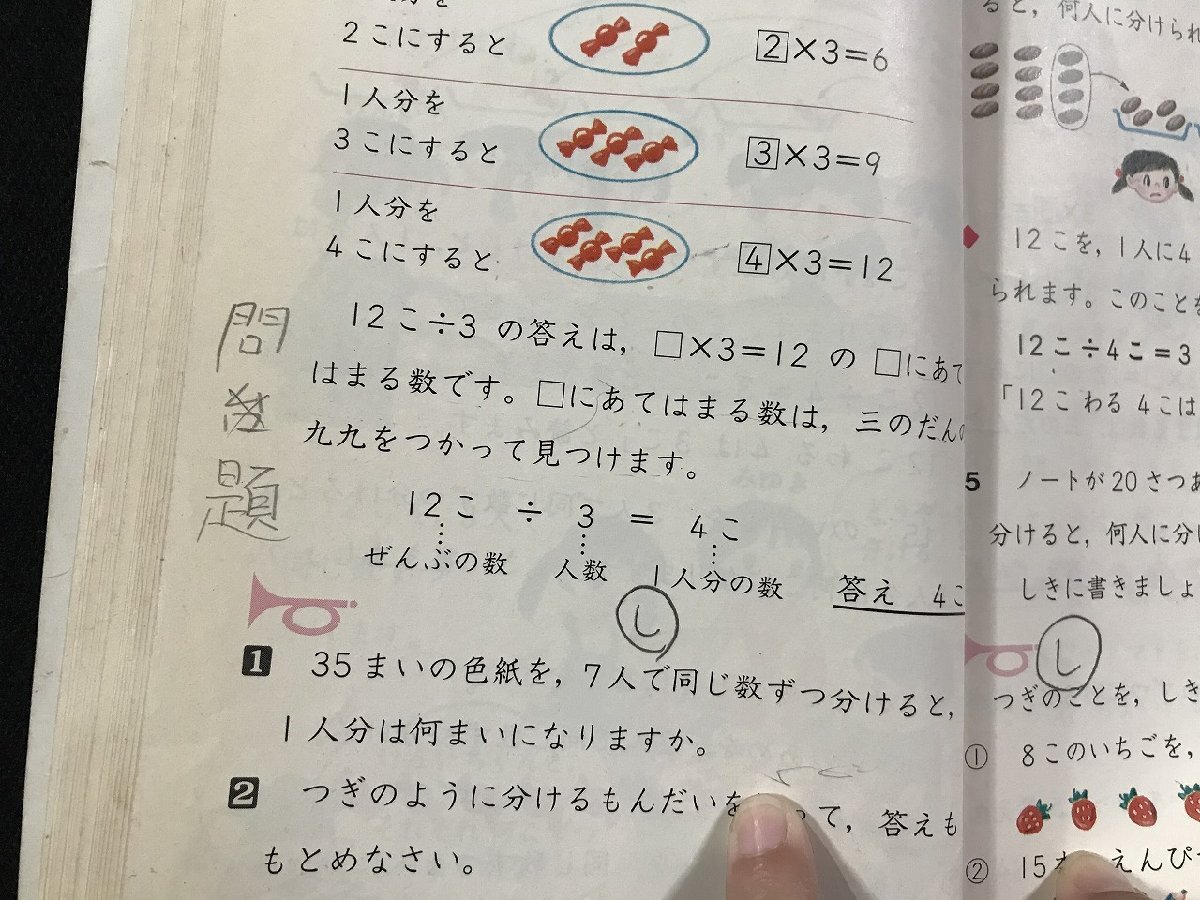 2こにすると
2×3=6
1人分を
3こにすると
3×3=9
1人分を
4こにすると
4×3=12
12こ÷3 の答えは, □×3=12 の □にあて
はまる数です。□にあてはまる数は, 三のだん
九九をつかって見つけます。
問
題
12こ ÷ 3 = 4こ
ぜんぶの数 人数 1人分の数
答え 4こ
し
1 35まいの色紙を, 7人で同じ数ずつ分けると,
1人分は何まいになりますか。
2 つぎのように分けるもんだいを って, 答えも
もとめなさい。
ると, 何人に分けられ
12こを, 1人に4
られます。このことを
12こ÷4こ=3
「12こ わる 4こは
5 ノートが20さつあ
分けると, 何人に分け
しきに書きましょ
し
つぎのことを, しき
① 8このいちごを,
② 15 えんぴ